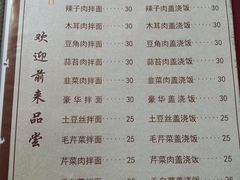 欢迎前来品尝
辣子肉拌面 30 辣子肉盖浇饭 30
木耳肉拌面 30 木耳肉盖浇饭 30
豆角肉拌面 30 豆角肉盖浇饭 30
蒜苔肉拌面 30 蒜苔肉盖浇饭 30
韭菜肉拌面 30 韭菜肉盖浇饭 30
豪华拌面 30 豪华盖浇饭 30
土豆丝拌面 25 土豆丝盖浇饭 25
毛芹菜拌面 25 毛芹菜盖浇饭 25
芹菜肉拌面 25 芹菜肉盖浇饭 25